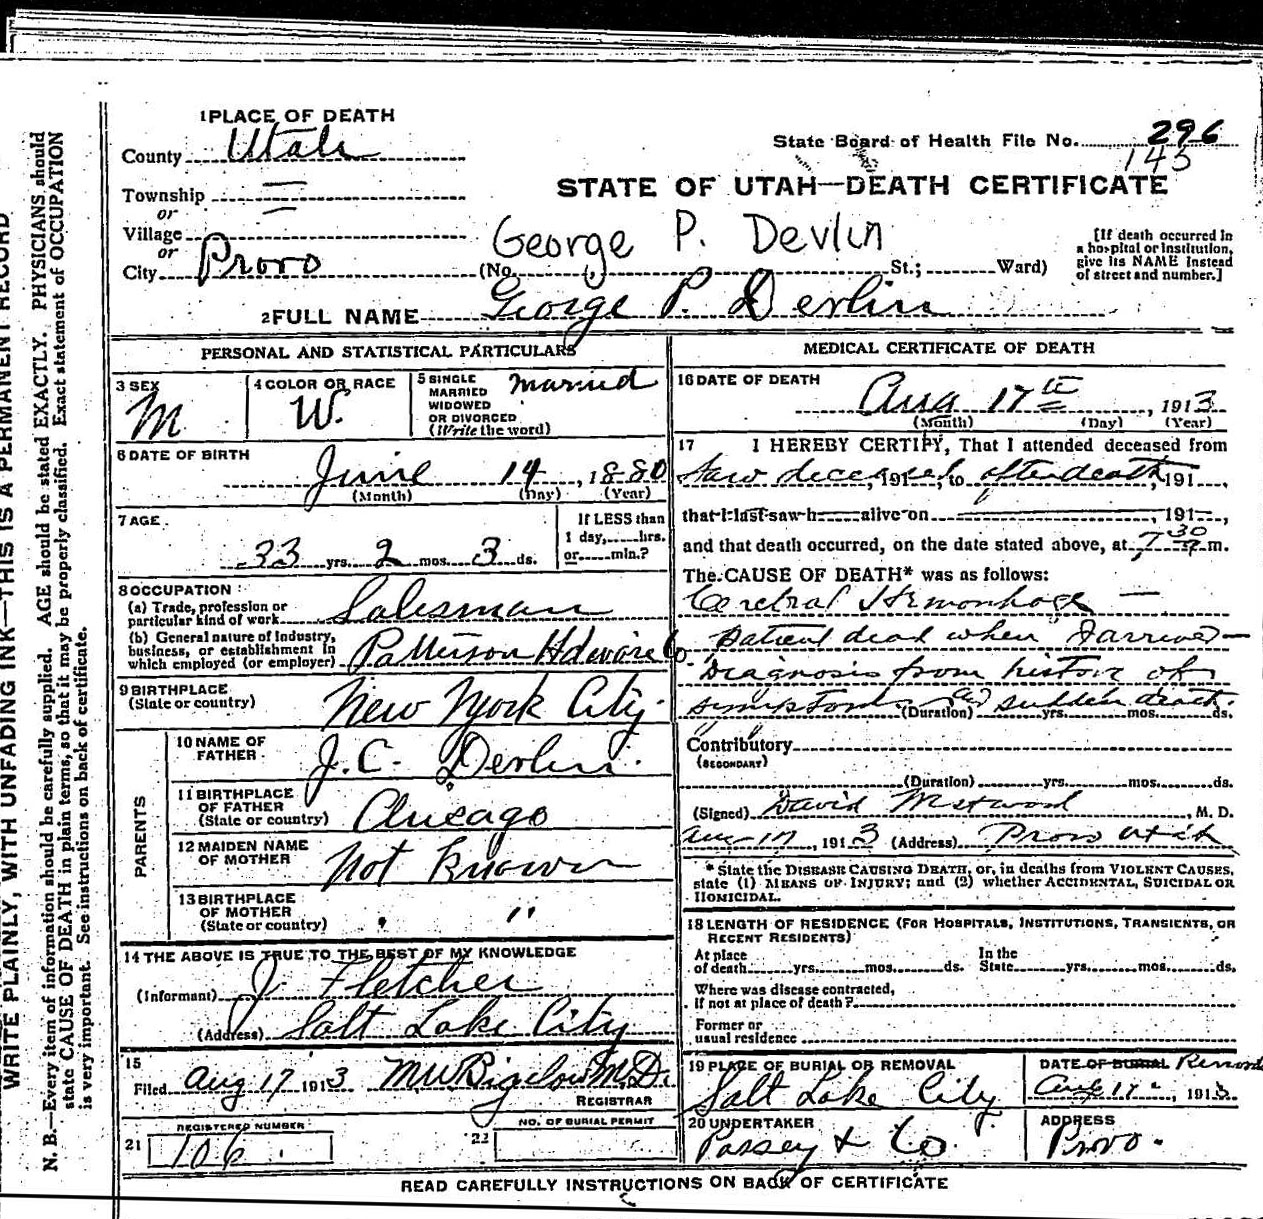 1 PLACE OF DEATH
County Utah
State Board of Health File No. 296
145
Township
or
Village
or
City Provo
STATE OF UTAH—DEATH CERTIFICATE
George P. Devlin
(No. St.; Ward)
[If death occurred in
a hospital or institution,
give its NAME instead
of street and number.]
2 FULL NAME George P. Devlin
PERSONAL AND STATISTICAL PARTICULARS
3 SEX
M
4 COLOR OR RACE
W.
5 SINGLE
MARRIED
WIDOWED
OR DIVORCED
(Write the word)
Married
6 DATE OF BIRTH
June 14, 1880
(Month) (Day) (Year)
7 AGE
33 yrs. 2 mos. 3 ds.
If LESS than
1 day, hrs.
or min.?
8 OCCUPATION
(a) Trade, profession or
particular kind of work Salesman
(b) General nature of Industry,
business, or establishment in
which employed (or employer) Patterson Hdware Co
9 BIRTHPLACE
(State or country) New York City
PARENTS
10 NAME OF
FATHER J. C. Devlin.
11 BIRTHPLACE
OF FATHER
(State or country) Chicago
12 MAIDEN NAME
OF MOTHER Not Known
13 BIRTHPLACE
OF MOTHER
(State or country) " "
14 THE ABOVE IS TRUE TO THE BEST OF MY KNOWLEDGE
(Informant) J. Fletcher
(Address) Salt Lake City
15
Filed Aug 17 1913 M W Bigelow M.D.
REGISTRAR
21 REGISTERED NUMBER
106
22 NO. OF BURIAL PERMIT
MEDICAL CERTIFICATE OF DEATH
16 DATE OF DEATH
Aug 17th, 1913
(Month) (Day) (Year)
17 I HEREBY CERTIFY, That I attended deceased from
Saw deceased, 191, to after death, 191,
that I last saw h alive on, 191,
and that death occurred, on the date stated above, at 7 30 m.
The CAUSE OF DEATH* was as follows:
Cerebral Hemorrhage —
Patient dead when I arrived —
Diagnosis from history of
symptoms and sudden death.
(Duration) yrs. mos. ds.
Contributory
(SECONDARY)
(Duration) yrs. mos. ds.
(Signed) David Westwood, M. D.
Aug 17, 1913 (Address) Provo Utah
* State the DISEASE CAUSING DEATH, or, in deaths from VIOLENT CAUSES,
state (1) MEANS OF INJURY; and (2) whether ACCIDENTAL, SUICIDAL OR
HOMICIDAL.
18 LENGTH OF RESIDENCE (FOR HOSPITALS, INSTITUTIONS, TRANSIENTS, OR
RECENT RESIDENTS)
At place
of death yrs. mos. ds.
In the
State yrs. mos. ds.
Where was disease contracted,
if not at place of death?
Former or
usual residence
19 PLACE OF BURIAL OR REMOVAL
Salt Lake City
DATE OF BURIAL Removal
Aug 17, 1913
20 UNDERTAKER
Passey & Co.
ADDRESS
Provo.
READ CAREFULLY INSTRUCTIONS ON BACK OF CERTIFICATE
WRITE PLAINLY, WITH UNFADING INK—THIS IS A PERMANENT RECORD
N. B.—Every item of information should be carefully supplied. AGE should be stated EXACTLY. PHYSICIANS should
state CAUSE OF DEATH in plain terms, so that it may be properly classified. Exact statement of OCCUPATION
is very important. See instructions on back of certificate.